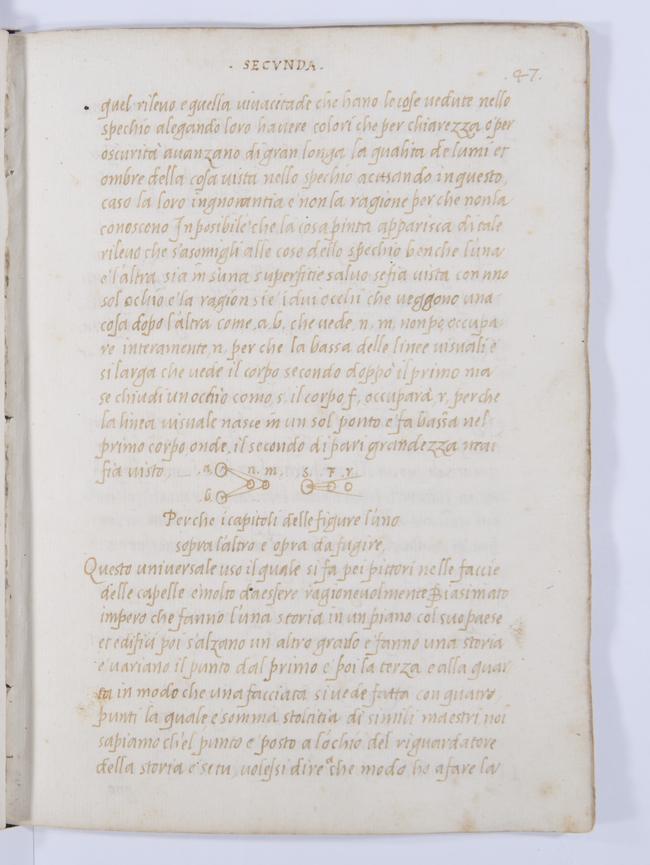 . SECVNDA .
. 47 .
quel rilevo e quella vivacitade che hano le cose vedute nello
spechio alegando loro havere colori che per chiarezza o per
oscurita avanzano di gran longa la qualita de lumi et
ombre della cosa vista nello spechio acusando in questo
caso la loro ingnorantia e non la ragione per che non la
conoscono Inposibile che la cosa pinta apparisca di tale
rilevo che s'asomigli alle cose dello spechio benche l'una
e l'altra sia in s'una superfitie salvo se fia vista con uno
sol ochio e la ragion si e i dui occhi che veggono una
cosa dopo l'altra come, a. b. che vede, n. m. non po occupa
re interamente, n. per che la bassa delle linee visuali e
si larga che vede il corpo secondo doppo il primo ma
se chiudi un ochio come, s. il corpo f. occuparà, r. perche
la linea visuale nasce in un sol ponto e fa bassa nel
primo corpo onde, il secondo di pari grandezza mai
fia visto,
.a. n. m. s. F .r.
b.
Perche i capitoli delle figure l'uno
sopra l'altro e opra da fugire,
Questo universale uso il quale si fa pei pittori nelle faccie
delle capelle e molto da essere ragionevolmente Biasimato
impero che fanno l'una storia in un piano col suo paese
et edifici poi s'alzano un altro grado e fanno una storia
e variano il punto dal primo e poi la terza e alla quar
ta in modo che una facciata si vede fatta con quatro
punti la quale e somma stoltitia di simili maestri noi
sapiamo ch'el punto e posto a l'ochio del riguardatore
della storia e se tu, volessi dire a che modo ho a fare la